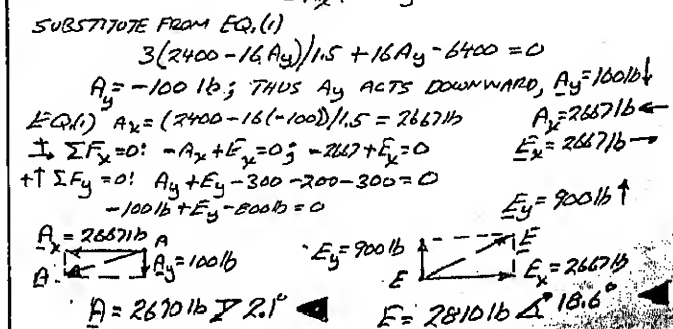 SUBSTITUTE FROM EQ.(1)
3(2400-16Ay)/1.5 + 16Ay - 6400 = 0
Ay = -100 lb; THUS Ay ACTS DOWNWARD, Ay = 100 lb ↓
EQ(1) Ax = (2400-16(-100))/1.5 = 2667 lb Ax = 2667 lb ←
+→ ΣFx = 0: -Ax + Ex = 0; -2667 + Ex = 0 Ex = 2667 lb →
+↑ ΣFy = 0: Ay + Ey - 300 - 200 - 300 = 0
-100 lb + Ey - 800 lb = 0 Ey = 900 lb ↑
Ax = 2667 lb A Ey = 900 lb E
A Ay = 100 lb E Ex = 2667 lb
A = 2670 lb 2.1° ◀ E = 2810 lb 18.6° ◀